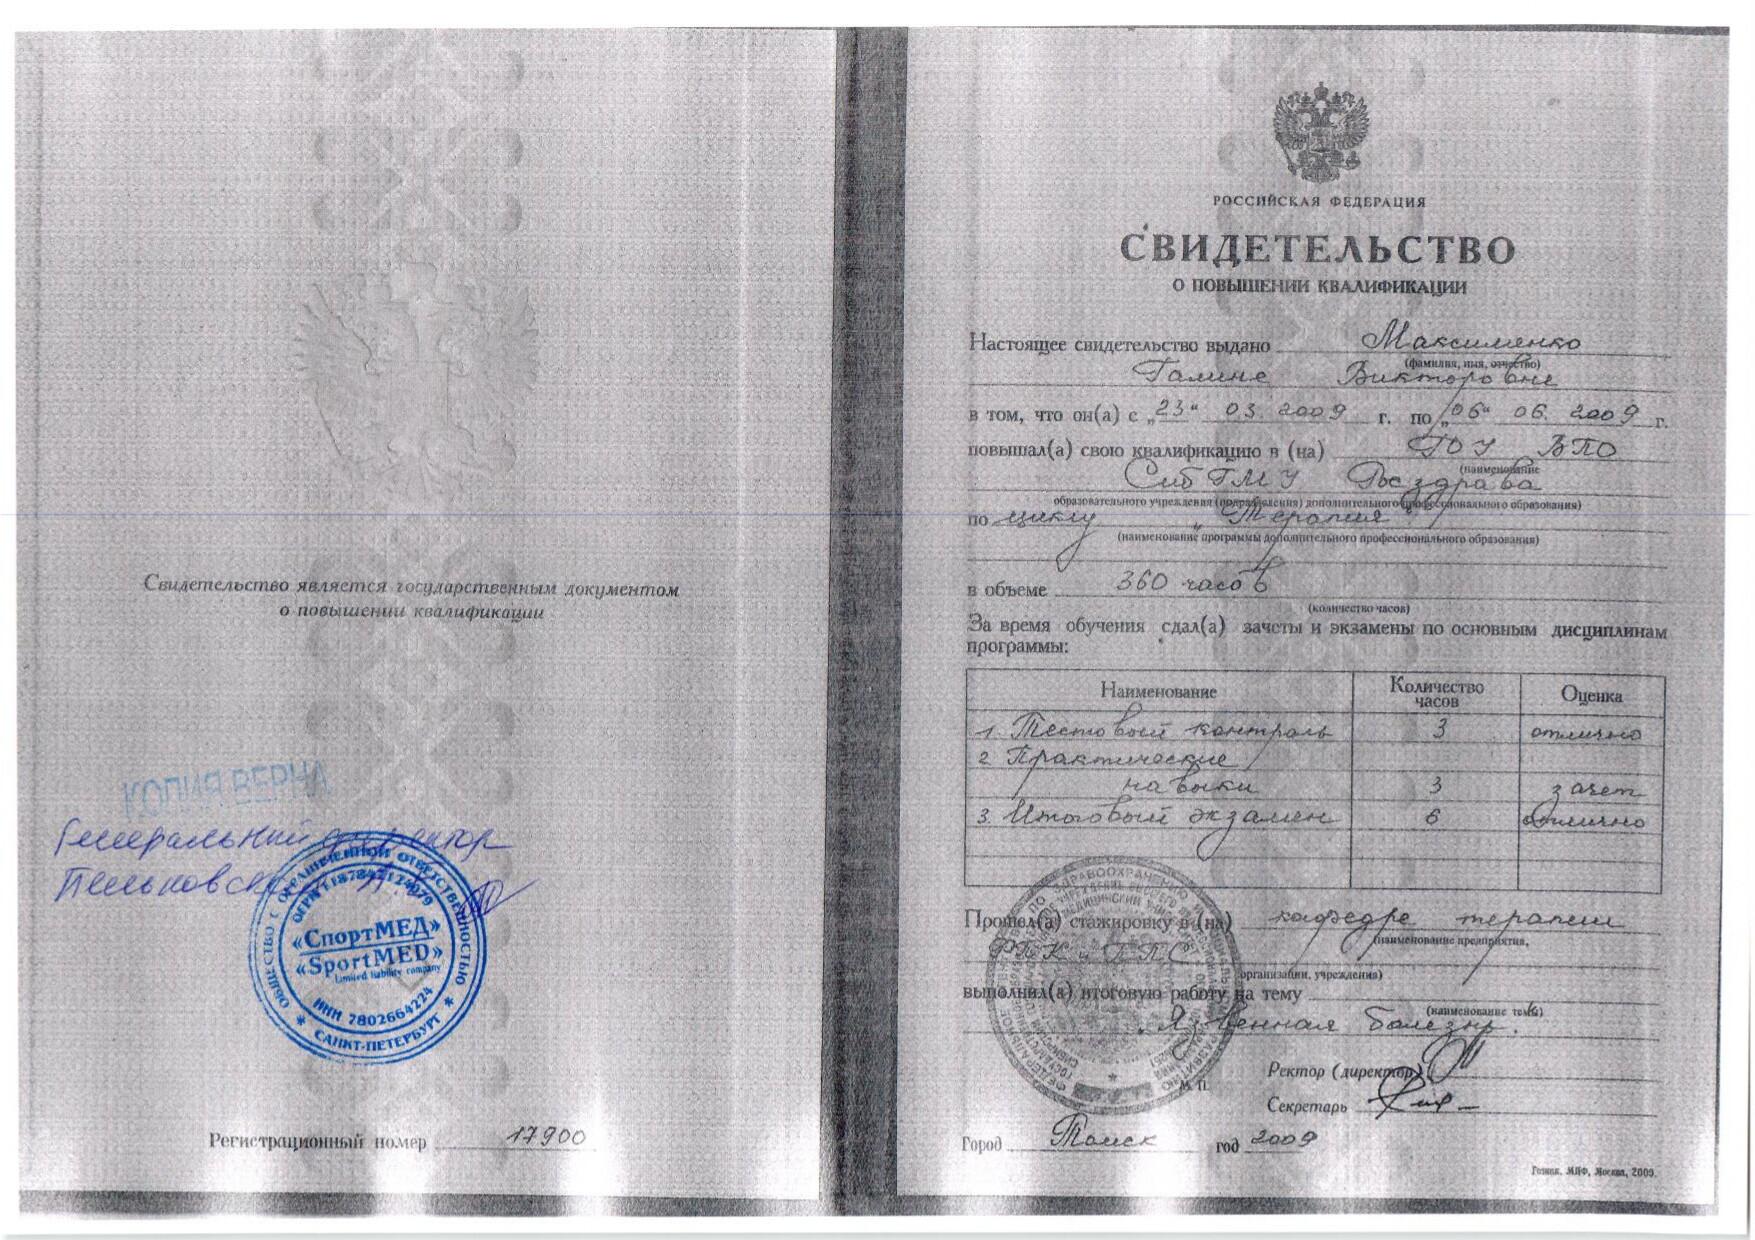 Свидетельство является государственным документом
о повышении квалификации
КОПИЯ ВЕРНА
Генеральный директор
ОБЩЕСТВО С ОГРАНИЧЕННОЙ ОТВЕТСТВЕННОСТЬЮ
ОГРН 1187847124079
«СпортМЕД»
«SportMED»
Limited liability company
ИНН 7802664224
* САНКТ-ПЕТЕРБУРГ *
Регистрационный номер 17900
РОССИЙСКАЯ ФЕДЕРАЦИЯ
СВИДЕТЕЛЬСТВО
О ПОВЫШЕНИИ КВАЛИФИКАЦИИ
Настоящее свидетельство выдано Максименко
(фамилия, имя, отчество)
Галине Викторовне
в том, что он(а) с „23“ 03. 2009 г. по „06“ 06. 2009 г.
повышал(а) свою квалификацию в (на) ГОУ ВПО
(наименование
СибГМУ Росздрава
образовательного учреждения (подразделения) дополнительного профессионального образования)
по циклу „Терапия“
(наименование программы дополнительного профессионального образования)
в объеме 360 часов
(количество часов)
За время обучения сдал(а) зачеты и экзамены по основным дисциплинам
программы:
Наименование Количество часов Оценка
1. Тестовый контроль 3 отлично
2 Практические
навыки 3 зачет
3. Итоговый экзамен 6 отлично
Прошел(а) стажировку в (на) кафедре терапии
(наименование предприятия,
ФПК и ППС
организации, учреждения)
выполнил(а) итоговую работу на тему
(наименование темы)
„Язвенная болезнь.
М. П.
Ректор (директор)
Секретарь
Город Томск год 2009
Гознак. МПФ, Москва, 2009.